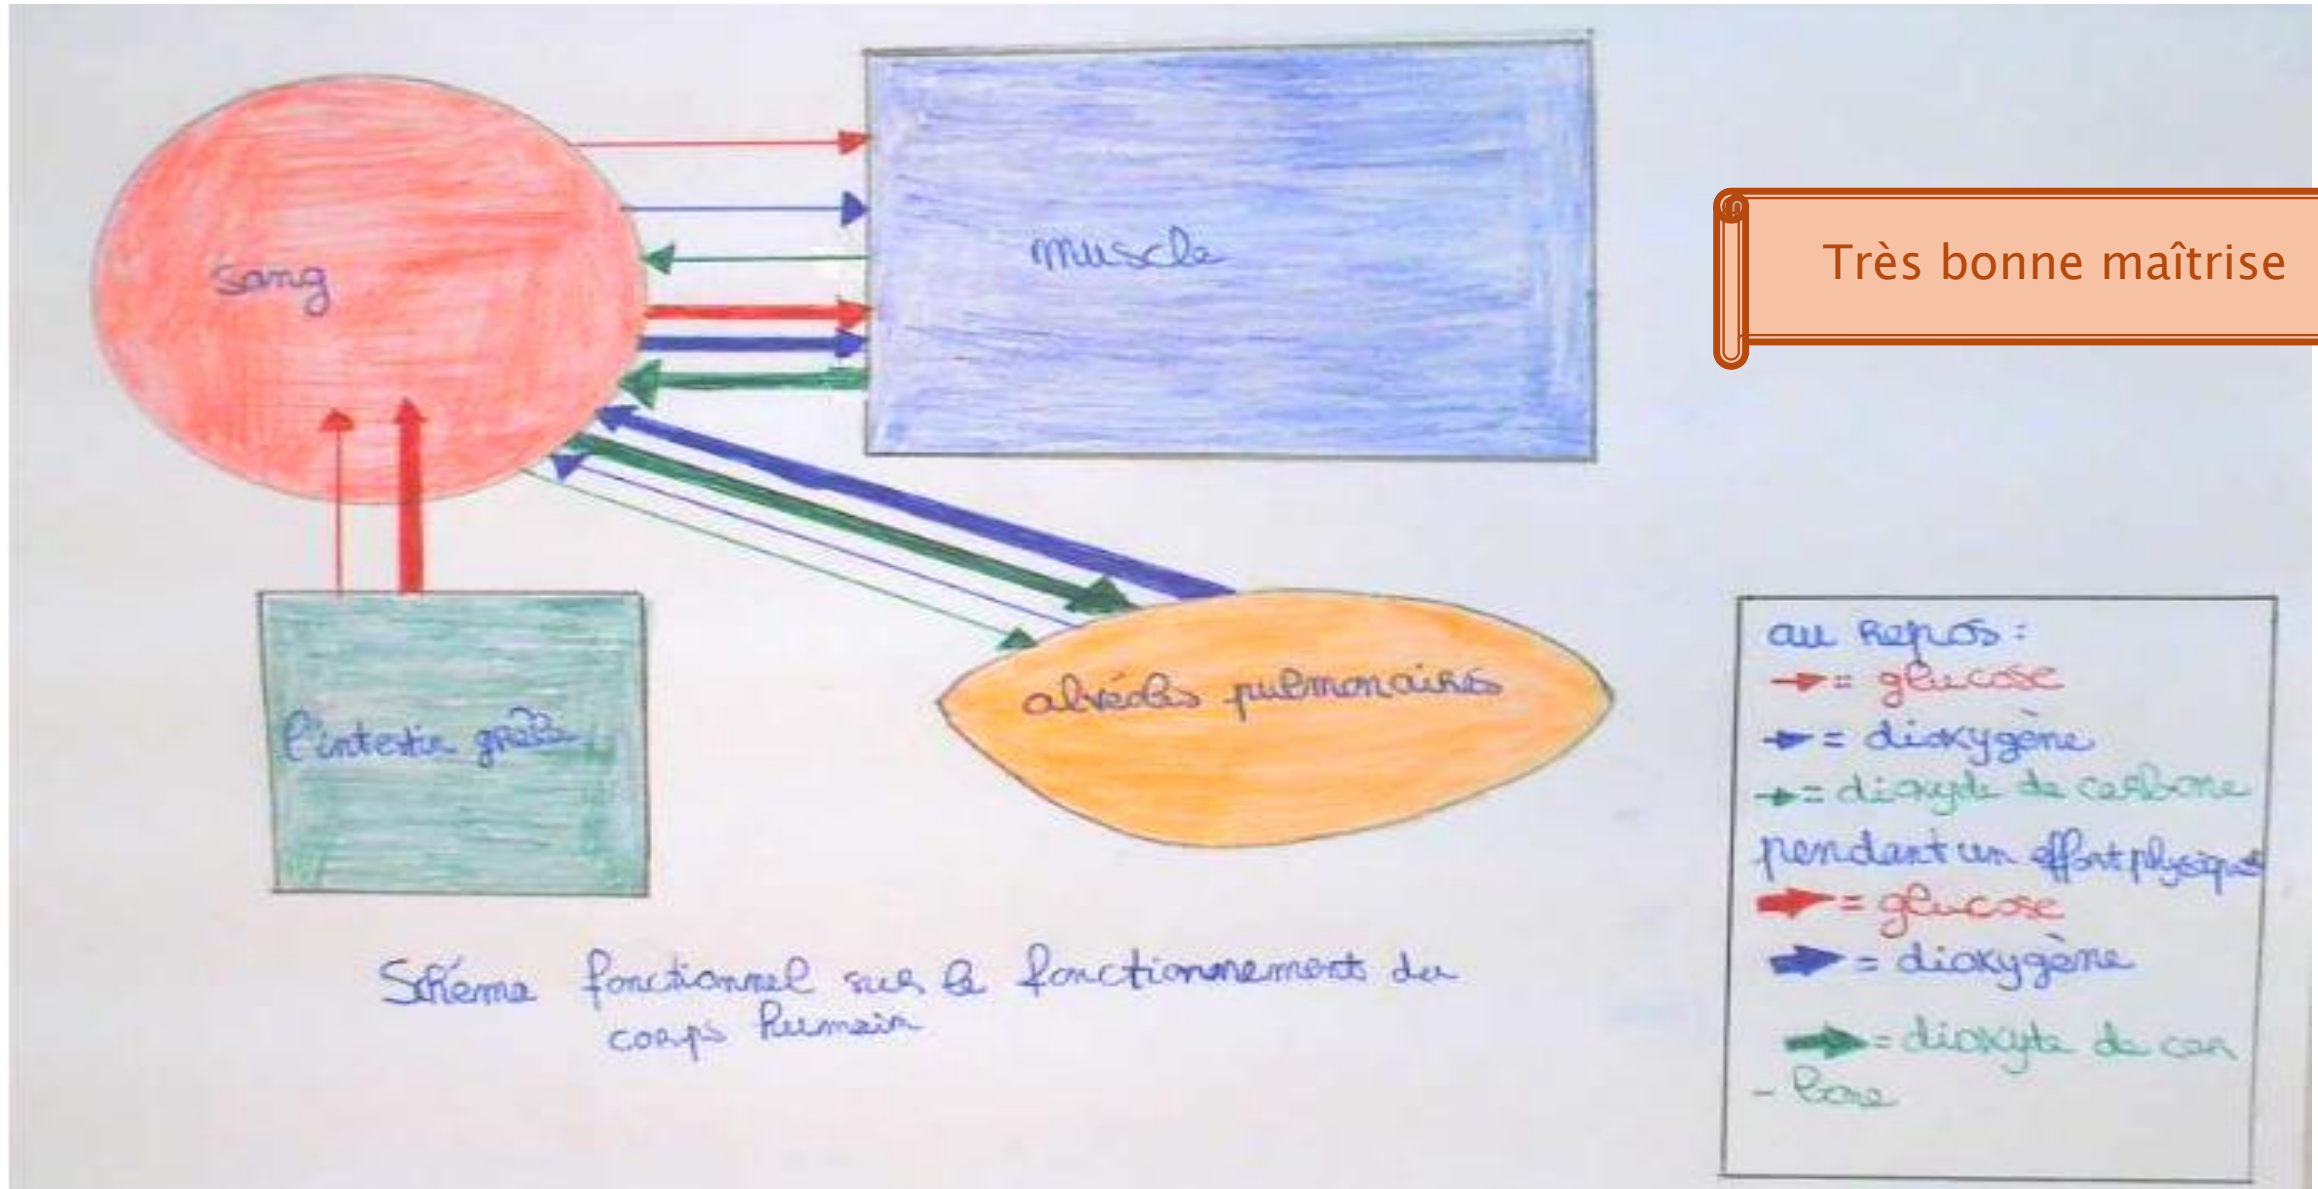 sang
muscle
Très bonne maîtrise
l'intestin grêle
alvéoles pulmonaires
au repos :
= glucose
= dioxygène
= dioxyde de carbone
pendant un effort physique
= glucose
= dioxygène
= dioxyde de car
- bone
Schéma fonctionnel sur le fonctionnement du
corps humain